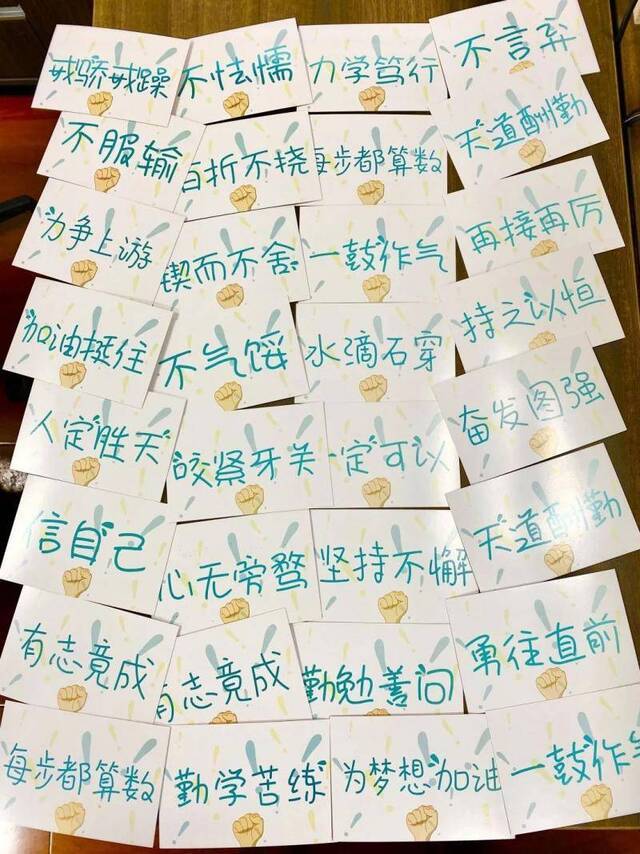 戒骄戒躁
不怯懦
力学笃行
不言弃
不服输
百折不挠
每步都算数
天道酬勤
力争上游
锲而不舍
一鼓作气
再接再厉
加油挺住
不气馁
水滴石穿
持之以恒
人定胜天
咬紧牙关
一定可以
奋发图强
信自己
心无旁骛
坚持不懈
天道酬勤
有志竟成
有志竟成
勤勉善问
勇往直前
每步都算数
勤学苦练
为梦想加油
一鼓作气